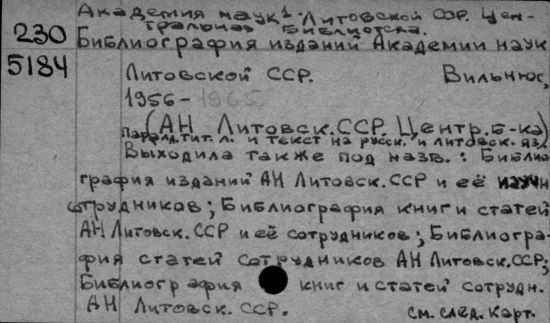 Академия наук Литовской ССР. Цен-
тральная библиотека.
230
Библиография изданий Академии наук
5184
Литовской ССР. Вильнюс,
1956-1965
(АН Литовск.ССР. Центр.б-ка)
Паралл.тит.л. и текст на русск. и литовск. яз.
Выходила также под назв.: Библио
графия изданий АН Литовск.ССР и её научн
сотрудников; Библиография книг и статей
АН Литовск.ССР и её сотрудников; Библиогра-
фия статей сотрудников АН Литовск.ССР;
Библиография книг и статей сотрудн.
АН Литовск. ССР.
см. след. карт.